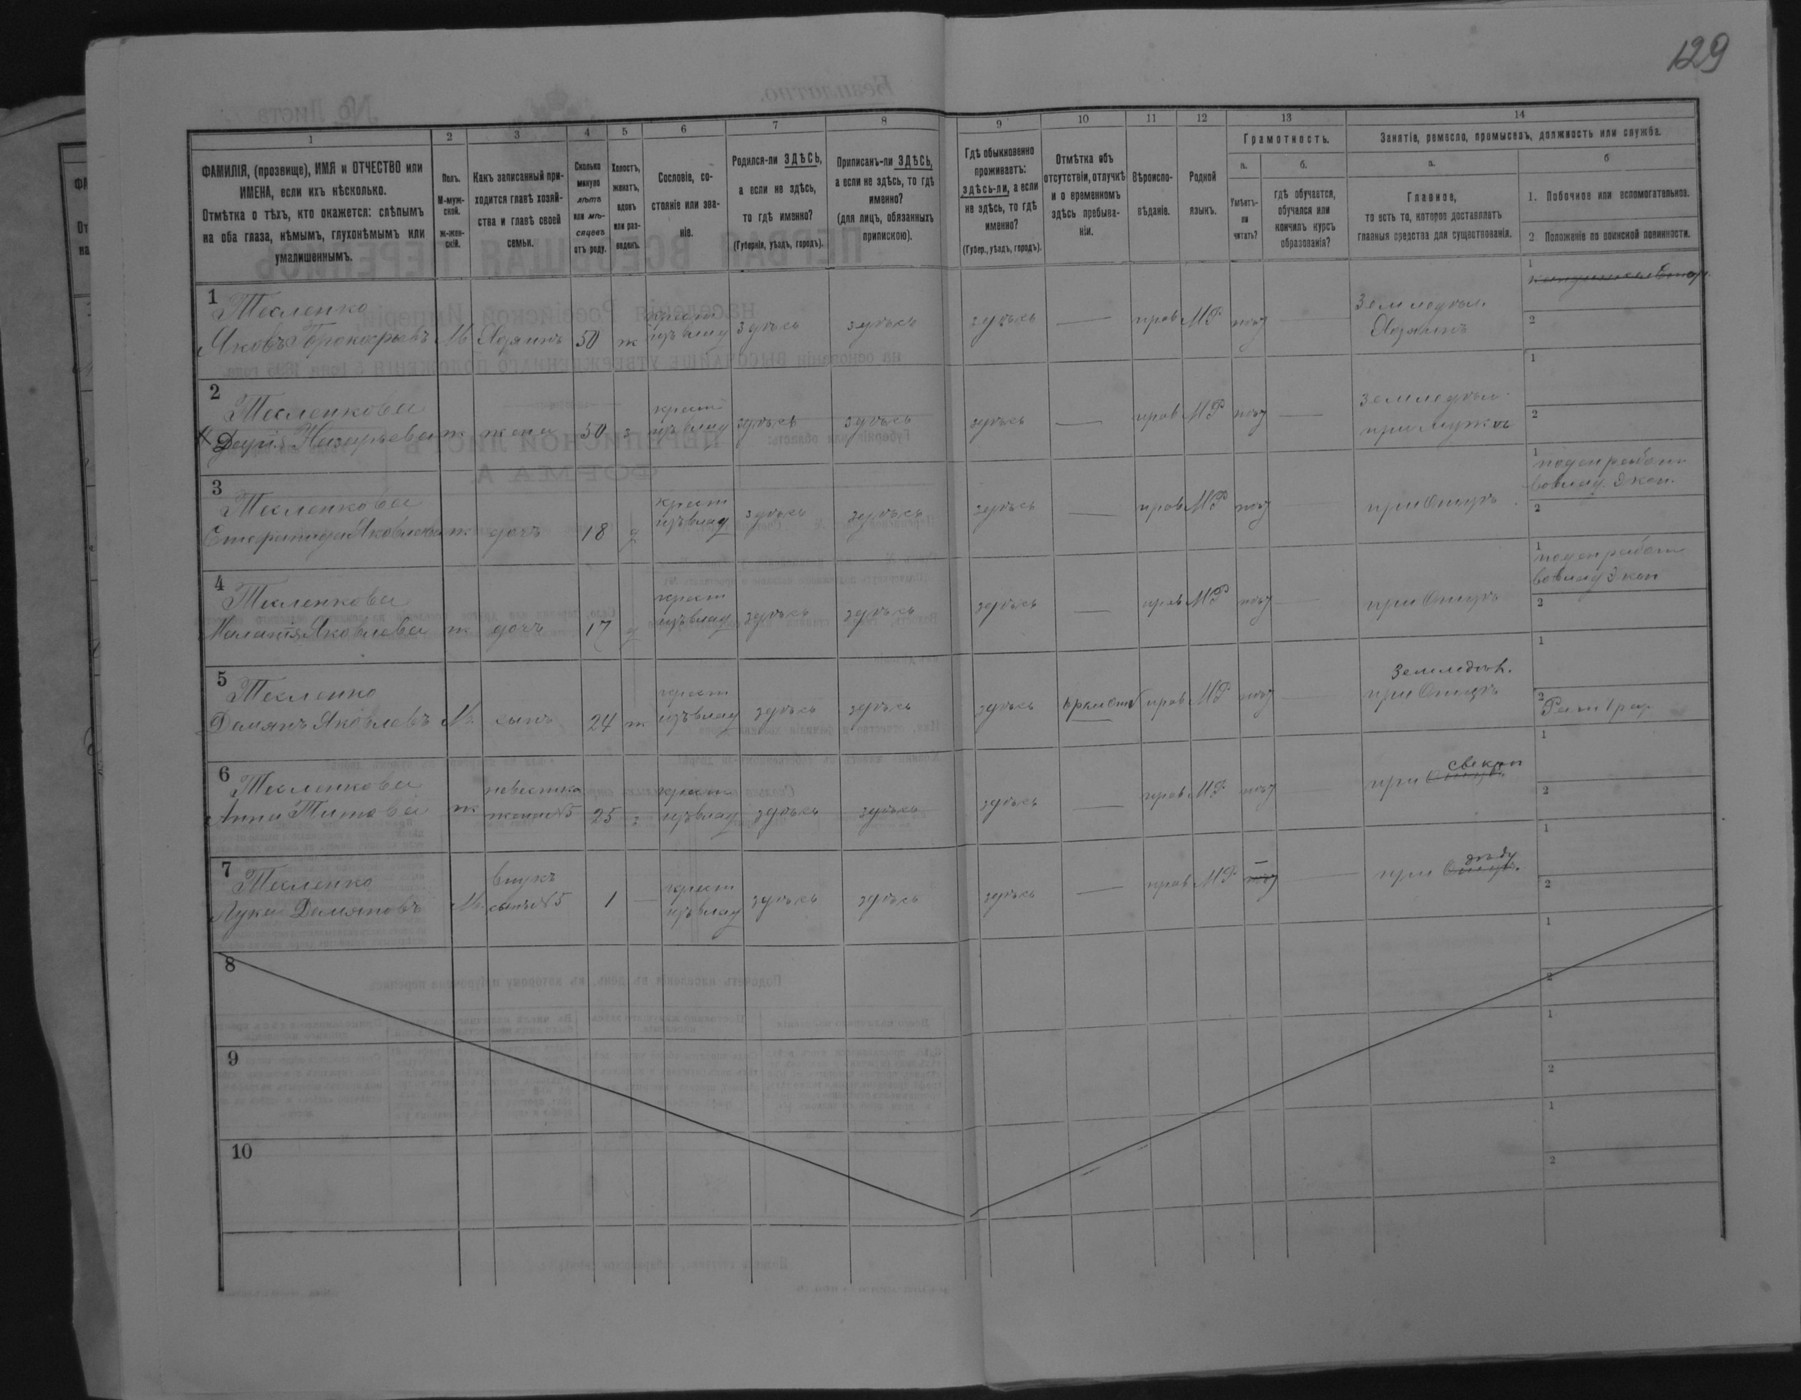 129
1
2
3
4
5
6
7
8
9
10
11
12
13
14
ФАМИЛІЯ, (прозвище), ИМЯ и ОТЧЕСТВО или
ИМЕНА, если ихъ нѣсколько.
Отмѣтка о тѣхъ, кто окажется: слѣпымъ
на оба глаза, нѣмымъ, глухонѣмымъ или
умалишеннымъ.
Полъ.
М-муж-
ской.
Ж-жен-
скій.
Какъ записанный при-
ходится главѣ хозяй-
ства и главѣ своей
семьи.
Сколько
минуло
лѣтъ
или мѣ-
сяцевъ
отъ роду.
Холостъ,
женатъ,
вдовъ
или раз-
веденъ.
Сословіе, со-
стояніе или зва-
ніе.
Родился-ли ЗДѢСЬ,
а если не здѣсь,
то гдѣ именно?
(Губернія, уѣздъ, городъ).
Приписанъ-ли ЗДѢСЬ,
а если не здѣсь, то гдѣ
именно?
(для лицъ, обязанныхъ
припискою).
Гдѣ обыкновенно
проживаетъ:
здѣсь-ли, а если
не здѣсь, то гдѣ
именно?
(Губер., уѣздъ, городъ).
Отмѣтка объ
отсутствіи, отлучкѣ
и о временномъ
здѣсь пребыва-
ніи.
Вѣроиспо-
вѣданіе.
Родной
языкъ.
Грамотность.
а.
Умѣетъ-
ли
читать?
б.
гдѣ обучается,
обучался или
кончилъ курсъ
образованія?
Занятіе, ремесло, промыселъ, должность или служба.
а.
Главное,
то есть то, которое доставляетъ
главныя средства для существованія.
б
1. Побочное или вспомогательное.
2. Положеніе по воинской повинности.
1
Тесленко
Яковъ Прокофьевъ М Хозяинъ 50 ж крест изъ влад здѣсь здѣсь здѣсь — прав МР нѣт — Земледѣл Хозяинъ
1
2
2
Тесленкова
Назарьева ж жена 50 з крест изъ влад здѣсь здѣсь здѣсь — прав МР нѣт — Земледѣл при мужѣ
1
2
3
Тесленкова
Яковлева ж дочь 18 д крест изъ влад здѣсь здѣсь здѣсь — прав МР нѣт при Отцѣ
1
2
4
Тесленкова
Яковлева ж дочь 17 д крест изъ влад здѣсь здѣсь здѣсь — прав МР нѣт при Отцѣ
1
2
5
Тесленко
Демянъ Яковлевъ М сынъ 24 ж крест изъ влад здѣсь здѣсь здѣсь прав МР нѣт Земледѣл. при Отцѣ
1
2
6
Тесленкова
Анна Титова ж невестка жена №5 25 з крест изъ влад здѣсь здѣсь здѣсь — прав МР нѣт при свекръ
1
2
7
Тесленко
Лука Демяновъ М внукъ сынъ №5 1 — крест изъ влад здѣсь здѣсь здѣсь — прав МР — при дѣду
1
2
8
1
2
9
1
2
10
1
2